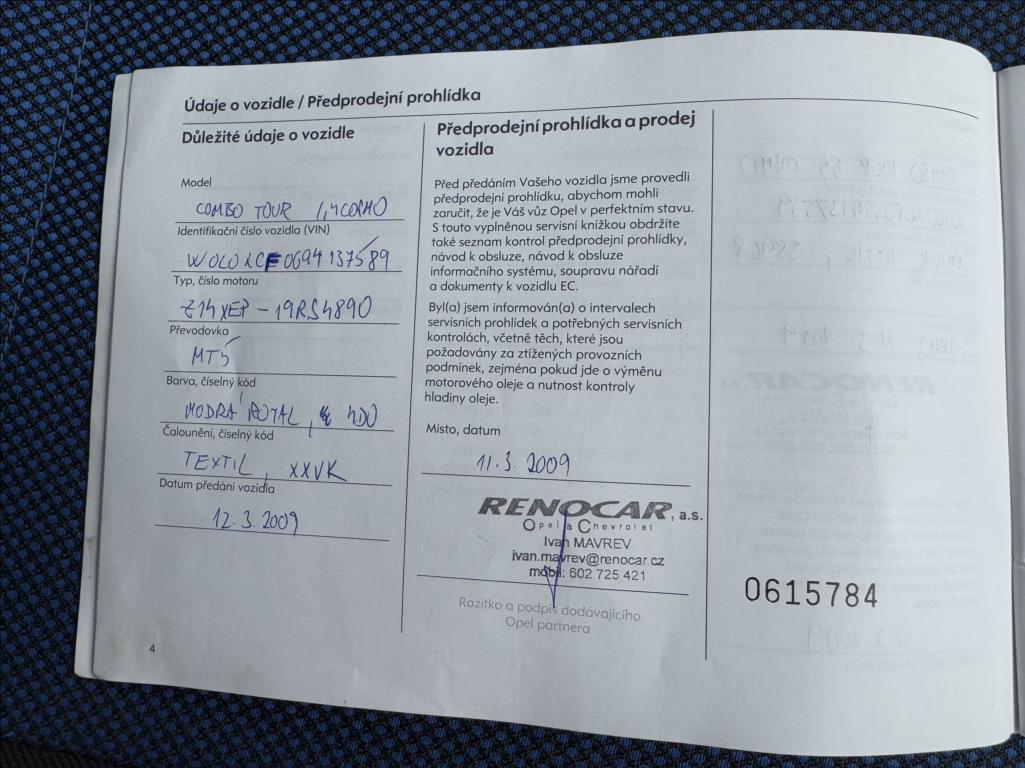 Údaje o vozidle / Předprodejní prohlídka
Důležité údaje o vozidle
Model
COMBO TOUR 1,4
Identifikační číslo vozidla (VIN)
W0L0XCF0694137589
Typ, číslo motoru
Z14XEP – 19RS4890
Převodovka
MT5
Barva, číselný kód
MODRÁ ROYAL,
Čalounění, číselný kód
TEXTIL, XXVK
Datum předání vozidla
12.3.2009
4
Předprodejní prohlídka a prodej
vozidla
Před předáním Vašeho vozidla jsme provedli
předprodejní prohlídku, abychom mohli
zaručit, že je Váš vůz Opel v perfektním stavu.
S touto vyplněnou servisní knížkou obdržíte
také seznam kontrol předprodejní prohlídky,
návod k obsluze, návod k obsluze
informačního systému, soupravu nářadí
a dokumenty k vozidlu EC.
Byl(a) jsem informován(a) o intervalech
servisních prohlídek a potřebných servisních
kontrolách, včetně těch, které jsou
požadovány za ztížených provozních
podmínek, zejména pokud jde o výměnu
motorového oleje a nutnost kontroly
hladiny oleje.
Místo, datum
11.3.2009
RENOCAR, a.s.
Opel a Chevrolet
Ivan MAVREV
ivan.mavrev@renocar.cz
mobil: 602 725 421
Razítko a podpis dodávajícího
Opel partnera
0615784